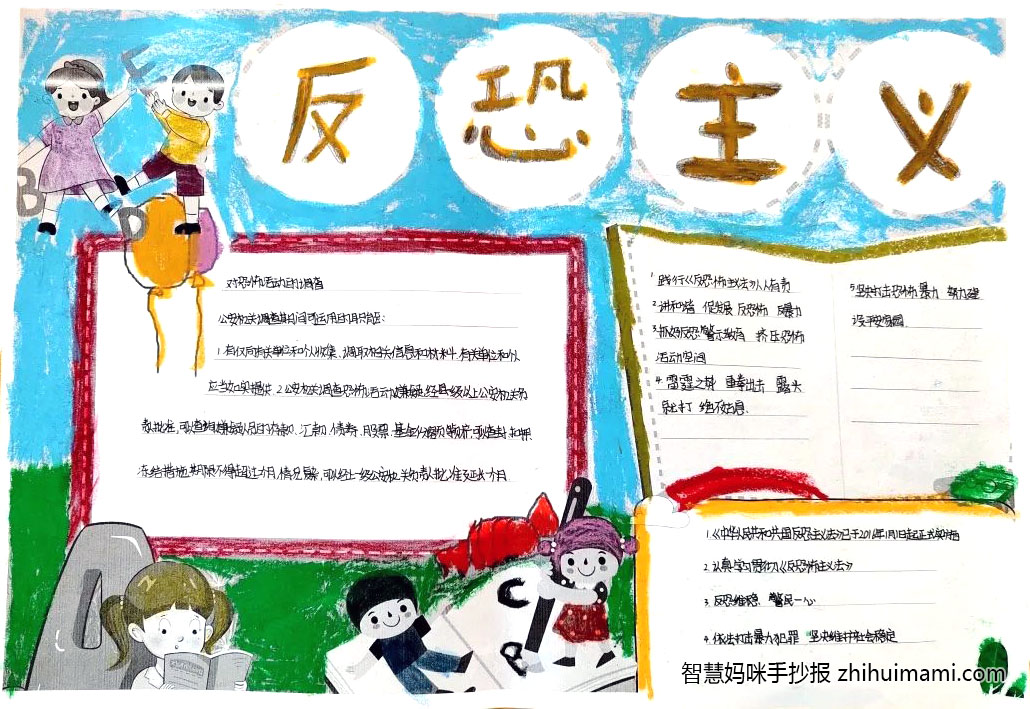 反恐主义
B
E
D
对恐怖活动进行调查
公安机关调查期间可运用的职能:
1.有权向有关单位和个人收集、调取相关信息和材料.有关单位和个人
应当如实提供.2.公安机关调查恐怖活动嫌疑,经县级以上公安机关负
责批准,可查询嫌疑人员的存款、汇款、债券、股票、基金份额
冻结措施期限不得超过 月,情况复杂,可以经上一级公安机关负责人批准延长 月
1.践行《反恐怖主义法》人人有责
2.讲和谐 促发展 反恐怖 反暴力
3.抓好反恐警示教育 挤压恐怖
活动空间
4.雷霆之势 重拳出击 露头
就打 绝不姑息.
5.坚决打击恐怖暴力 努力建
设平安家园.
1.《中华人民共和共国反恐主义法》已于2016年1月1日起正式实施
2.认真学习贯彻《反恐怖主义法》
3.反恐维稳、警民一心
4.依法打击暴力犯罪 坚决维护社会稳定
A
C
智慧妈咪手抄报 zhihuimami.com